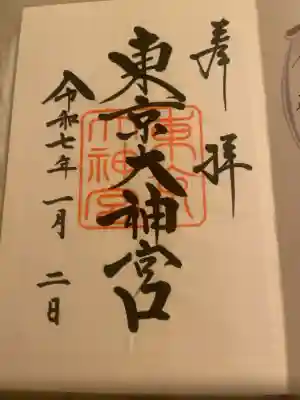 奉拝
東京大神宮
東京
大神宮
令和七年一月二日